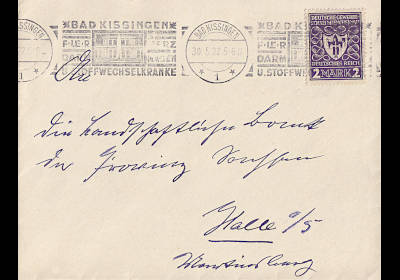 BAD KISSINGEN
FÜR HERZ
DARM
U. STOFFWECHSELKRANKE
BAD KISSINGEN
30.5.22 5-6 N.
1
BAD KISSINGEN
FÜR
DARM
U. STOFFWE
DEUTSCHE GEWERBE
DEUTSCHES REICH
2 MARK 2
An
die Landschaftliche Bank
der Provinz Sachsen
Halle a/S